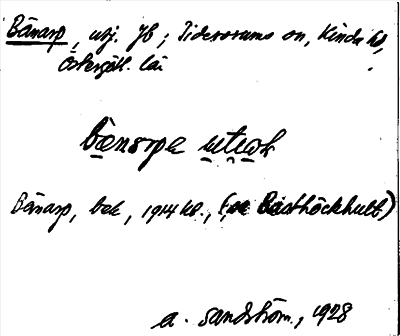 Bänarp, utj. Jb; Tidersrums sn, Kinda hd,
Östergötl. län
bæ̀narpa utɩak
Bänarp, bek, 1914 kb., (se Basthöckhult)
A. Sandström, 1928